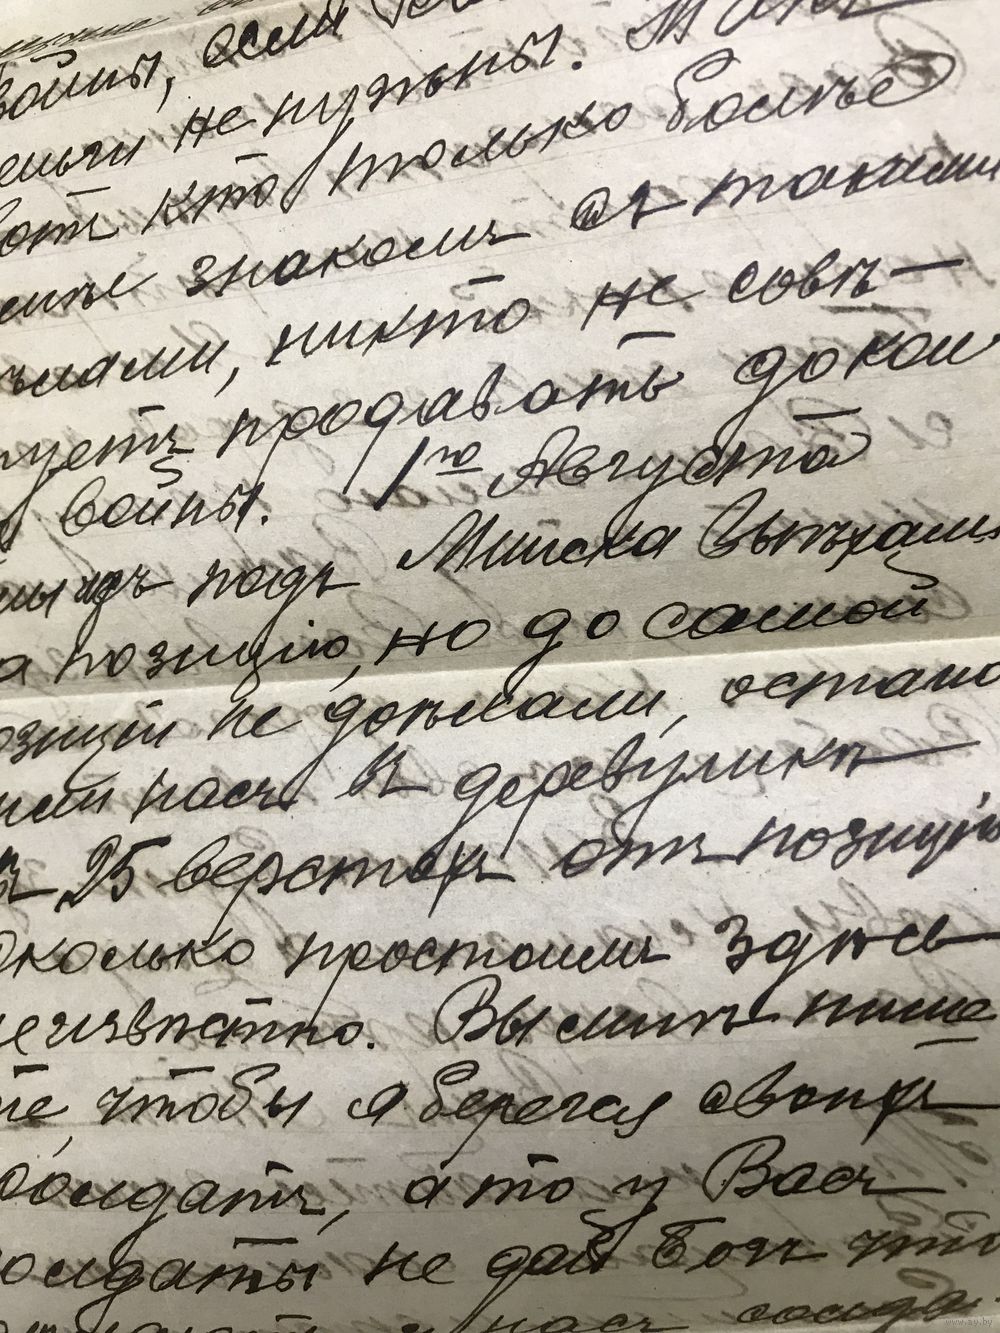 войны, если
не нужны.
вотъ кто только болѣе
знакомъ съ такими
ѣлами, никто не совѣ-
туетъ продавать до кон
войны. 1го Августа
мы изъ подъ Минска выѣхали
а позицію, но до самой
озиціи не доѣхали, остано
насъ въ деревушкѣ
въ 25 верстахъ отъ позиціи
сколько простоимъ здѣсь
неизвѣстно. Вы мнѣ пише
те чтобы я берегся своихъ
солдатъ, а то у Васъ
солдаты не дай Богъ что
у насъ солда
www.ay.by